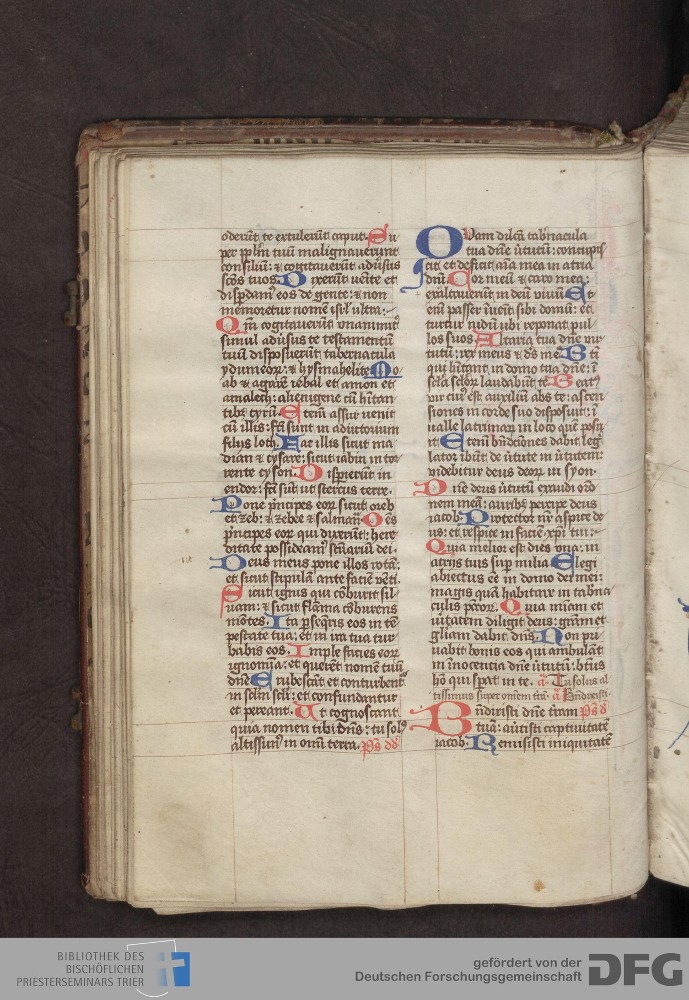 oderūt te extulerūt caput. Su
per pp̄lm tuū malignaverunt
consiliū: et cogitaverūt adūsus
scōs tuos. Dixerūt venite et
disꝑdamꝰ eos de gente: et non
memoretur nomē isrl̄ ultra:
Qm̄ cogitaverūt unanimitꝰ
simul adūsus te testamentū
tuū disposuerūt tabernacula
ydumeoꝝ: et hysmahelite Mo
ab et agarē iebal et amon et
amalech: alienigene cū hītan
tibꝰ tyrū. Etem̄ assur venit
cū illis: fc̄i sunt in adiutorium
filijs loth. Fac illis sicut ma
dian et cysare: sicut iabin in tor
rente cyson. Disperierūt in
endor: fc̄i sūt ut stercus terre.
Pone pͥncipes eoꝝ sicut oreb
et zeb: et zebee et salmanā Oēs
pͥncipes eoꝝ qui dixerūt: here
ditate possideamꝰ sc̄uariū dei.
Deus meus pone illos rotā:
et sicut stipulā ante faciē vēti.
Sicut ignis qui cōburit sil
uam: et sicut flāma cōburens
mōtes. Ita ꝑseqͥris eos in tē
pestate tua: et in ira tua tur
babis eos. Imple facies eoꝝ
ignomīa: et querēt nomē tuū
dn̄e Erubescāt et conturbentꝰ
in sclm̄ scl̄i: et confundantur
et pereant. Et cognoscant
quia nomen tibi dn̄s: tu solꝰ
altissimꝰ in omī terra. Ps dd
QUam dilc̄a tab̄nacula
tua dn̄e v̄tutū: concupis
cit et deficit aīa mea in atria
dn̄i Cor meū et caro mea:
exultaverūt in deū vivū Et
em̄ passer īuēit sibi domū: et
turtur nidū ubi reponat pul
los suos Altaria tua dn̄e vir
tutū: rex meus et ds̄ meꝰ Bti
qui hītant in domo tua dn̄e: ī
scl̄a scl̄oꝝ laudabūt te Beatꝰ
vir cuiꝰ est auxiliū abs te: ascen
siones in corde suo disposuit: ī
ualle lacrimaꝝ in loco quē posu
it Etem̄ bn̄dc̄iones dabit leg
lator ibūt de v̄tute in v̄tutem:
videbitur deus deoꝝ in syon.
Dn̄e deus v̄tutū exaudi orō
nem meā: auribꝰ percipe deus
iacob. Protector nr̄ aspice de
us: et respice in faciē xp̄i tui:
Quia melior est dies vna: in
atrijs tuis suꝑ milia Elegi
abiectus eē in domo dei mei:
magis quā habitare in tab̄na
culis pc̄coꝝ. Quia mīam et
v̄itatem diligit deus: gr̄am et
gl̄iam dabit dn̄s. Non pri
uabit bonis eos qui ambulāt
in īnocentia dn̄e v̄tutū: btūs
hō qui sꝑat in te. a Tu solus al
tissimus super omēm trā. a Bn̄dixisti
Bn̄dixisti dn̄e t̄ram Ps d
tuā: au̇tisti captiuitatē
iacob. Remisisti iniquitatē
BIBLIOTHEK DES
BISCHÖFLICHEN
PRIESTERSEMINARS TRIER
gefördert von der
Deutschen Forschungsgemeinschaft
DFG